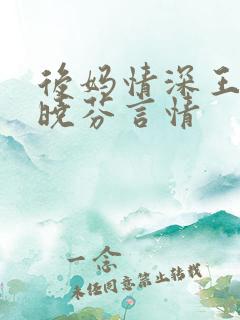 後妈情深王
晓芬言情
一念
未经同意禁止转载